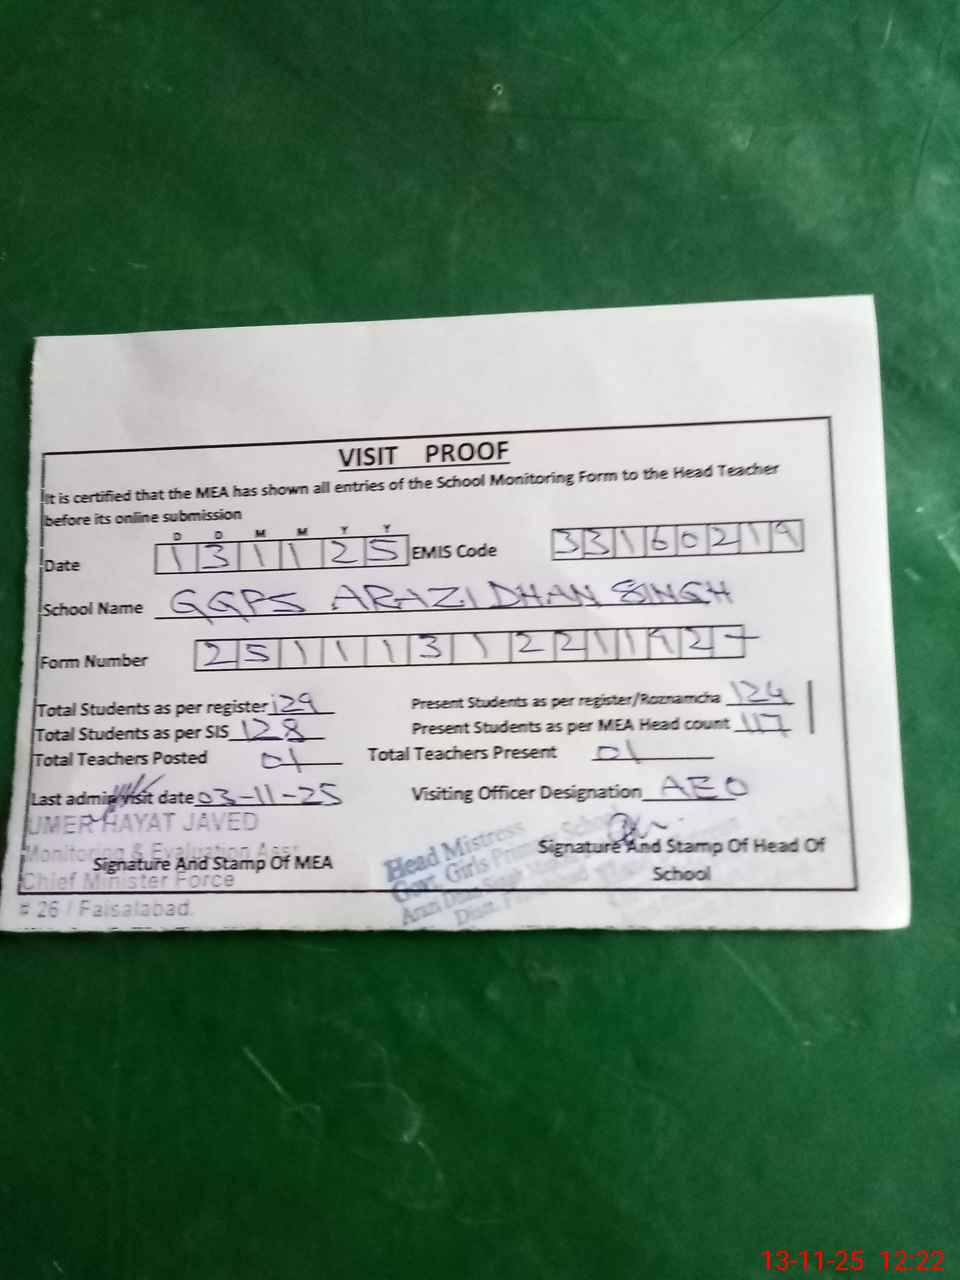 VISIT PROOF
It is certified that the MEA has shown all entries of the School Monitoring Form to the Head Teacher
before its online submission
D D M M Y Y
Date 131125 EMIS Code 33160219
School Name GGPS ARAZI DHAN SINGH
Form Number 25111312211
Total Students as per register 129 Present Students as per register/Roznamcha 124
Total Students as per SIS 128 Present Students as per MEA Head count 117
Total Teachers Posted 01 Total Teachers Present 01
Last admin visit date 03-11-25 Visiting Officer Designation AEO
UMER HAYAT JAVED
Monitoring & Evaluation Asst
Signature And Stamp Of MEA
Chief Minister Force
# 26 / Faisalabad.
Head Mistress
Govt. Girls
Signature And Stamp Of Head Of
School
13-11-25 12:22